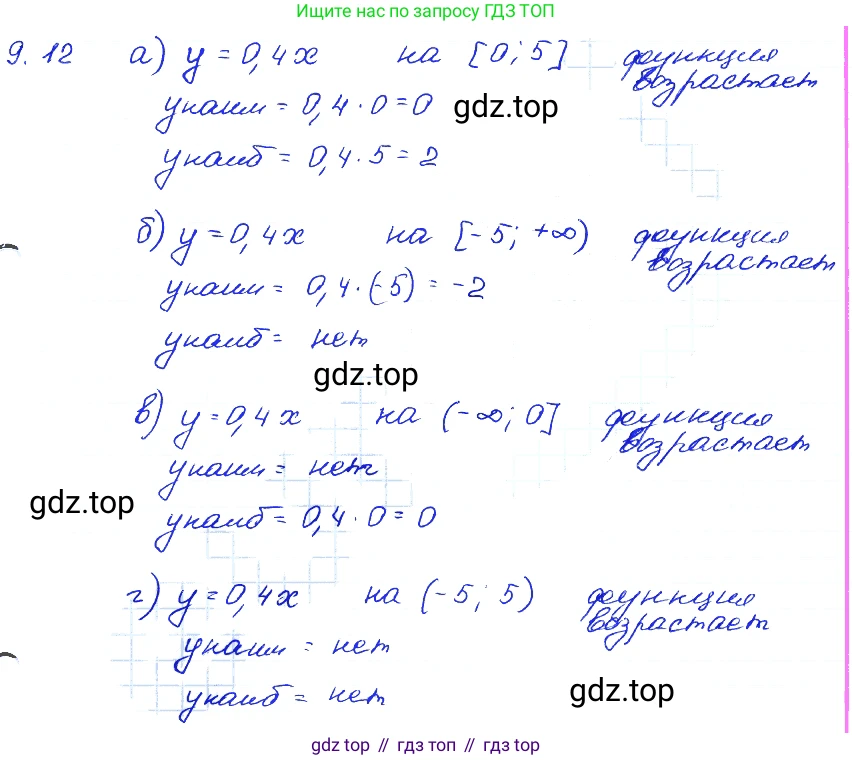 Ищите нас по запросу ГДЗ ТОП
9.12 а) y = 0,4x на [0; 5] функция возрастает
yнаим = 0,4 · 0 = 0
gdz.top
yнаиб = 0,4 · 5 = 2
б) y = 0,4x на [-5; +∞) функция возрастает
yнаим = 0,4 · (-5) = -2
yнаиб = нет
gdz.top
в) y = 0,4x на (-∞; 0] функция возрастает
yнаим = нет
gdz.top
yнаиб = 0,4 · 0 = 0
г) y = 0,4x на (-5; 5) функция возрастает
yнаим = нет
yнаиб = нет
gdz.top
gdz top // гдз топ // gdz top